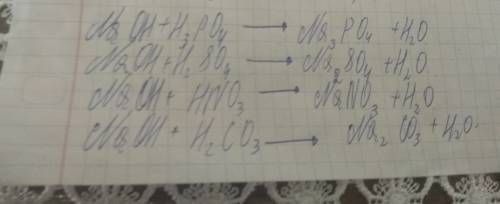 NaOH + H₃PO₄ ⟶ Na₃PO₄ + H₂O
NaOH + H₂SO₄ ⟶ Na₂SO₄ + H₂O
NaOH + HNO₃ ⟶ NaNO₃ + H₂O
NaOH + H₂CO₃ ⟶ Na₂CO₃ + H₂O.